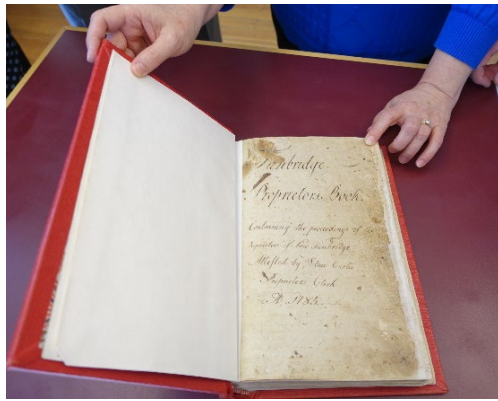 Tunbridge
Proprietors Book.
Containing the proceedings of the
Proprietors of said Tunbridge
Attested by Elias Curtis
Proprietors Clerk